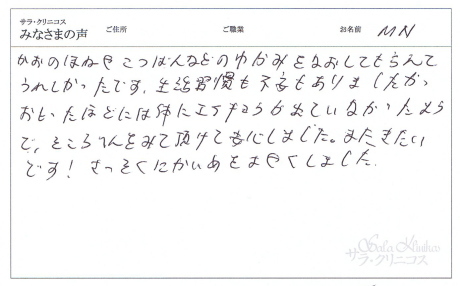 サラ・クリニコス
みなさまの声 ご住所 ご職業 お名前 MN
かおのほねやこつばんなどのゆがみをなおしてもらえて
うれしかったです。生活習慣も不安もありましたが
おもったほどには体にエイキョウが出ていなかったよう
で、ところてんをみて頂けて安心しました。またきたい
です！さっそくにかいめをよやくしました。
Sala Klinikos
サラ・クリニコス